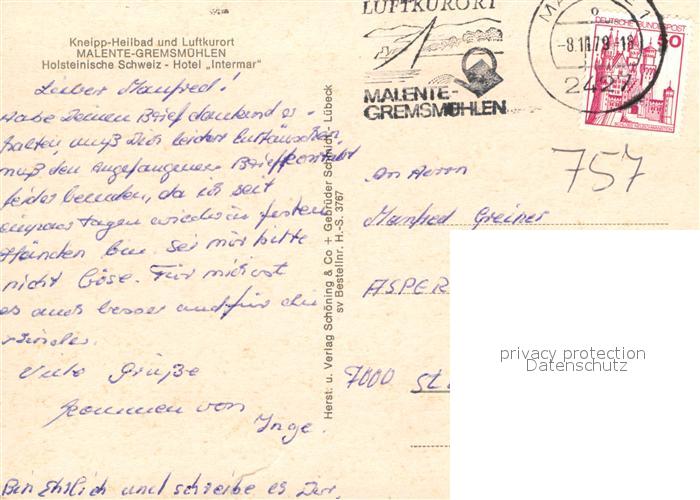 Kneipp-Heilbad und Luftkurort
MALENTE-GREMSMÜHLEN
Holsteinische Schweiz - Hotel „Intermar"
Lieber Manfred!
Habe Deinen Brief dankend er-
halten muß Dich leider Enttäuschen
muß den Angefangenen Briefkontakt
leider beenden, da ich seit
einpaar Tagen wieder in festen
Händen bin. Sei mir bitte
nicht Böse. Für mich ist
es auch besser und für die
Kinder.
Viele Grüße
kommen von
Inge.
Bin Ehrlich und schreibe es Dir,
Herst. u. Verlag Schöning & Co + Gebrüder Schmidt, Lübeck
sv Bestellnr. H.-S. 3767
LUFTKURORT
MALENTE-
GREMSMÜHLEN
MA
-8.11.79-18
2427
DEUTSCHE BUNDESPOST
50
757
An Herrn
Manfred Greiner
ASPER
7000 St
privacy protection
Datenschutz